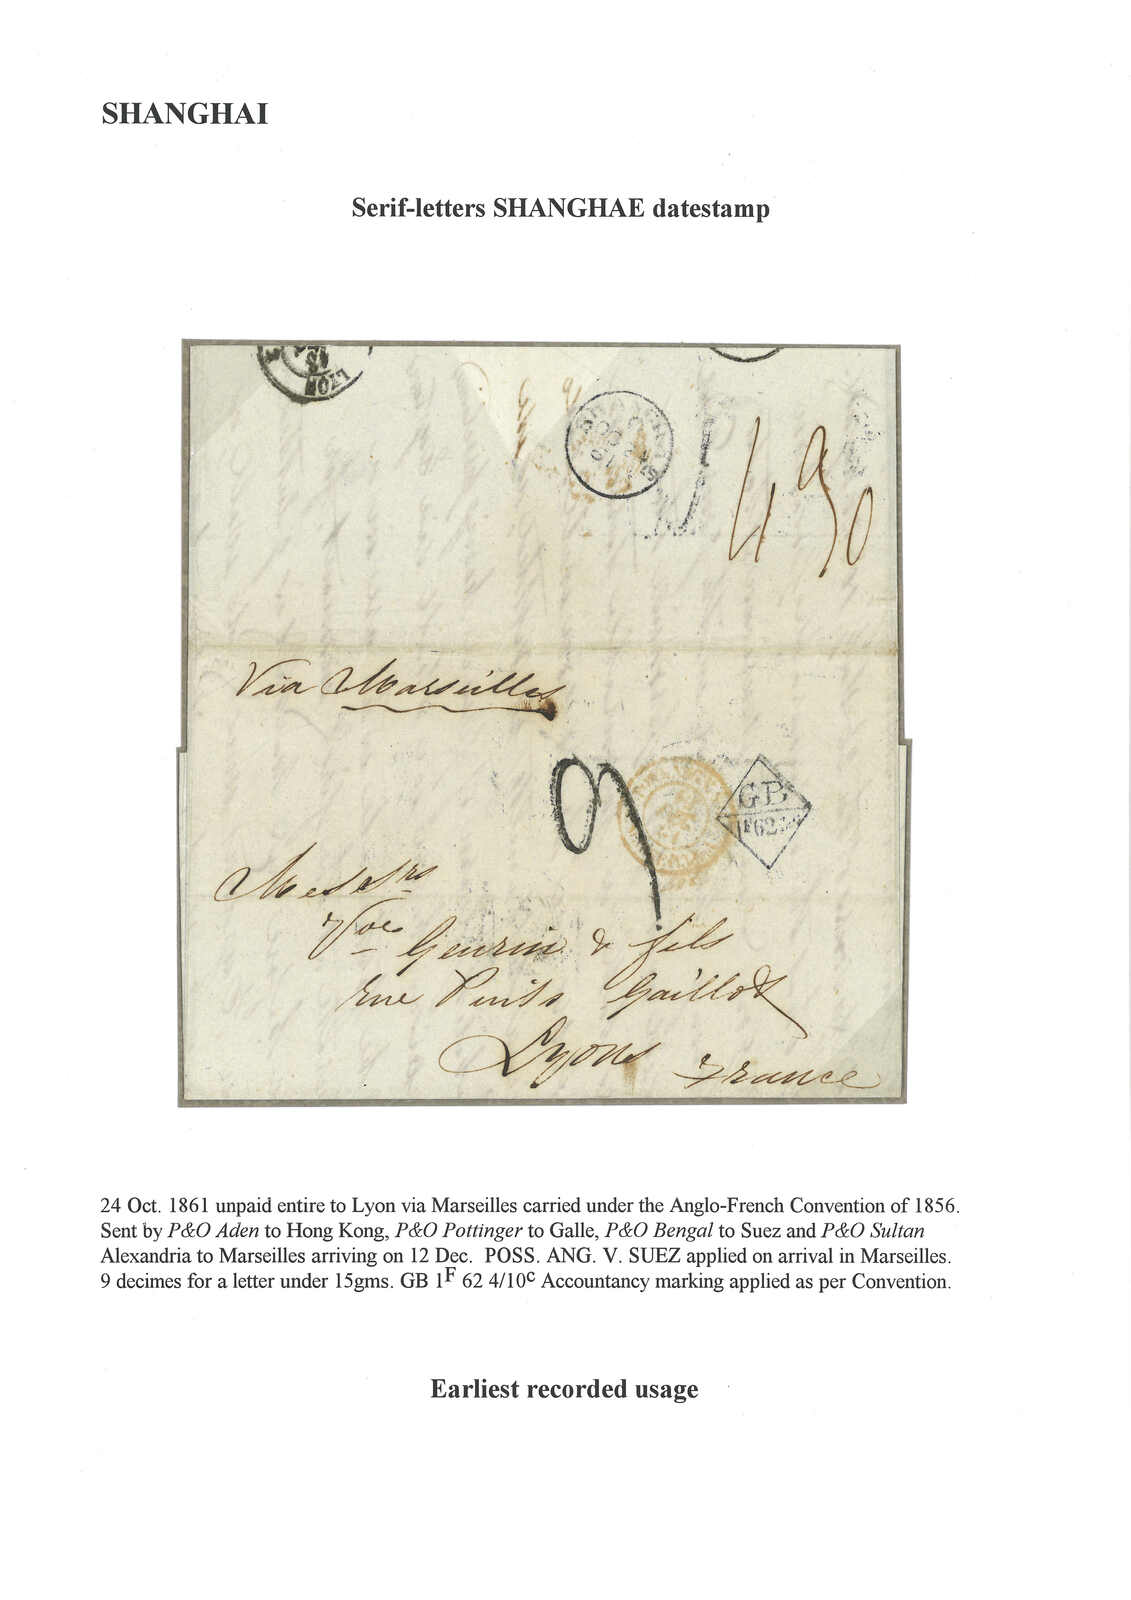 SHANGHAI
Serif-letters SHANGHAE datestamp
LYON
490
Via Marseilles
9
GB
1F62
Messrs
Vve Guerin & fils
Rue Puits Gaillot
Lyons France
24 Oct. 1861 unpaid entire to Lyon via Marseilles carried under the Anglo-French Convention of 1856.
Sent by P&O Aden to Hong Kong, P&O Pottinger to Galle, P&O Bengal to Suez and P&O Sultan
Alexandria to Marseilles arriving on 12 Dec. POSS. ANG. V. SUEZ applied on arrival in Marseilles.
9 decimes for a letter under 15gms. GB 1F 62 4/10c Accountancy marking applied as per Convention.
Earliest recorded usage